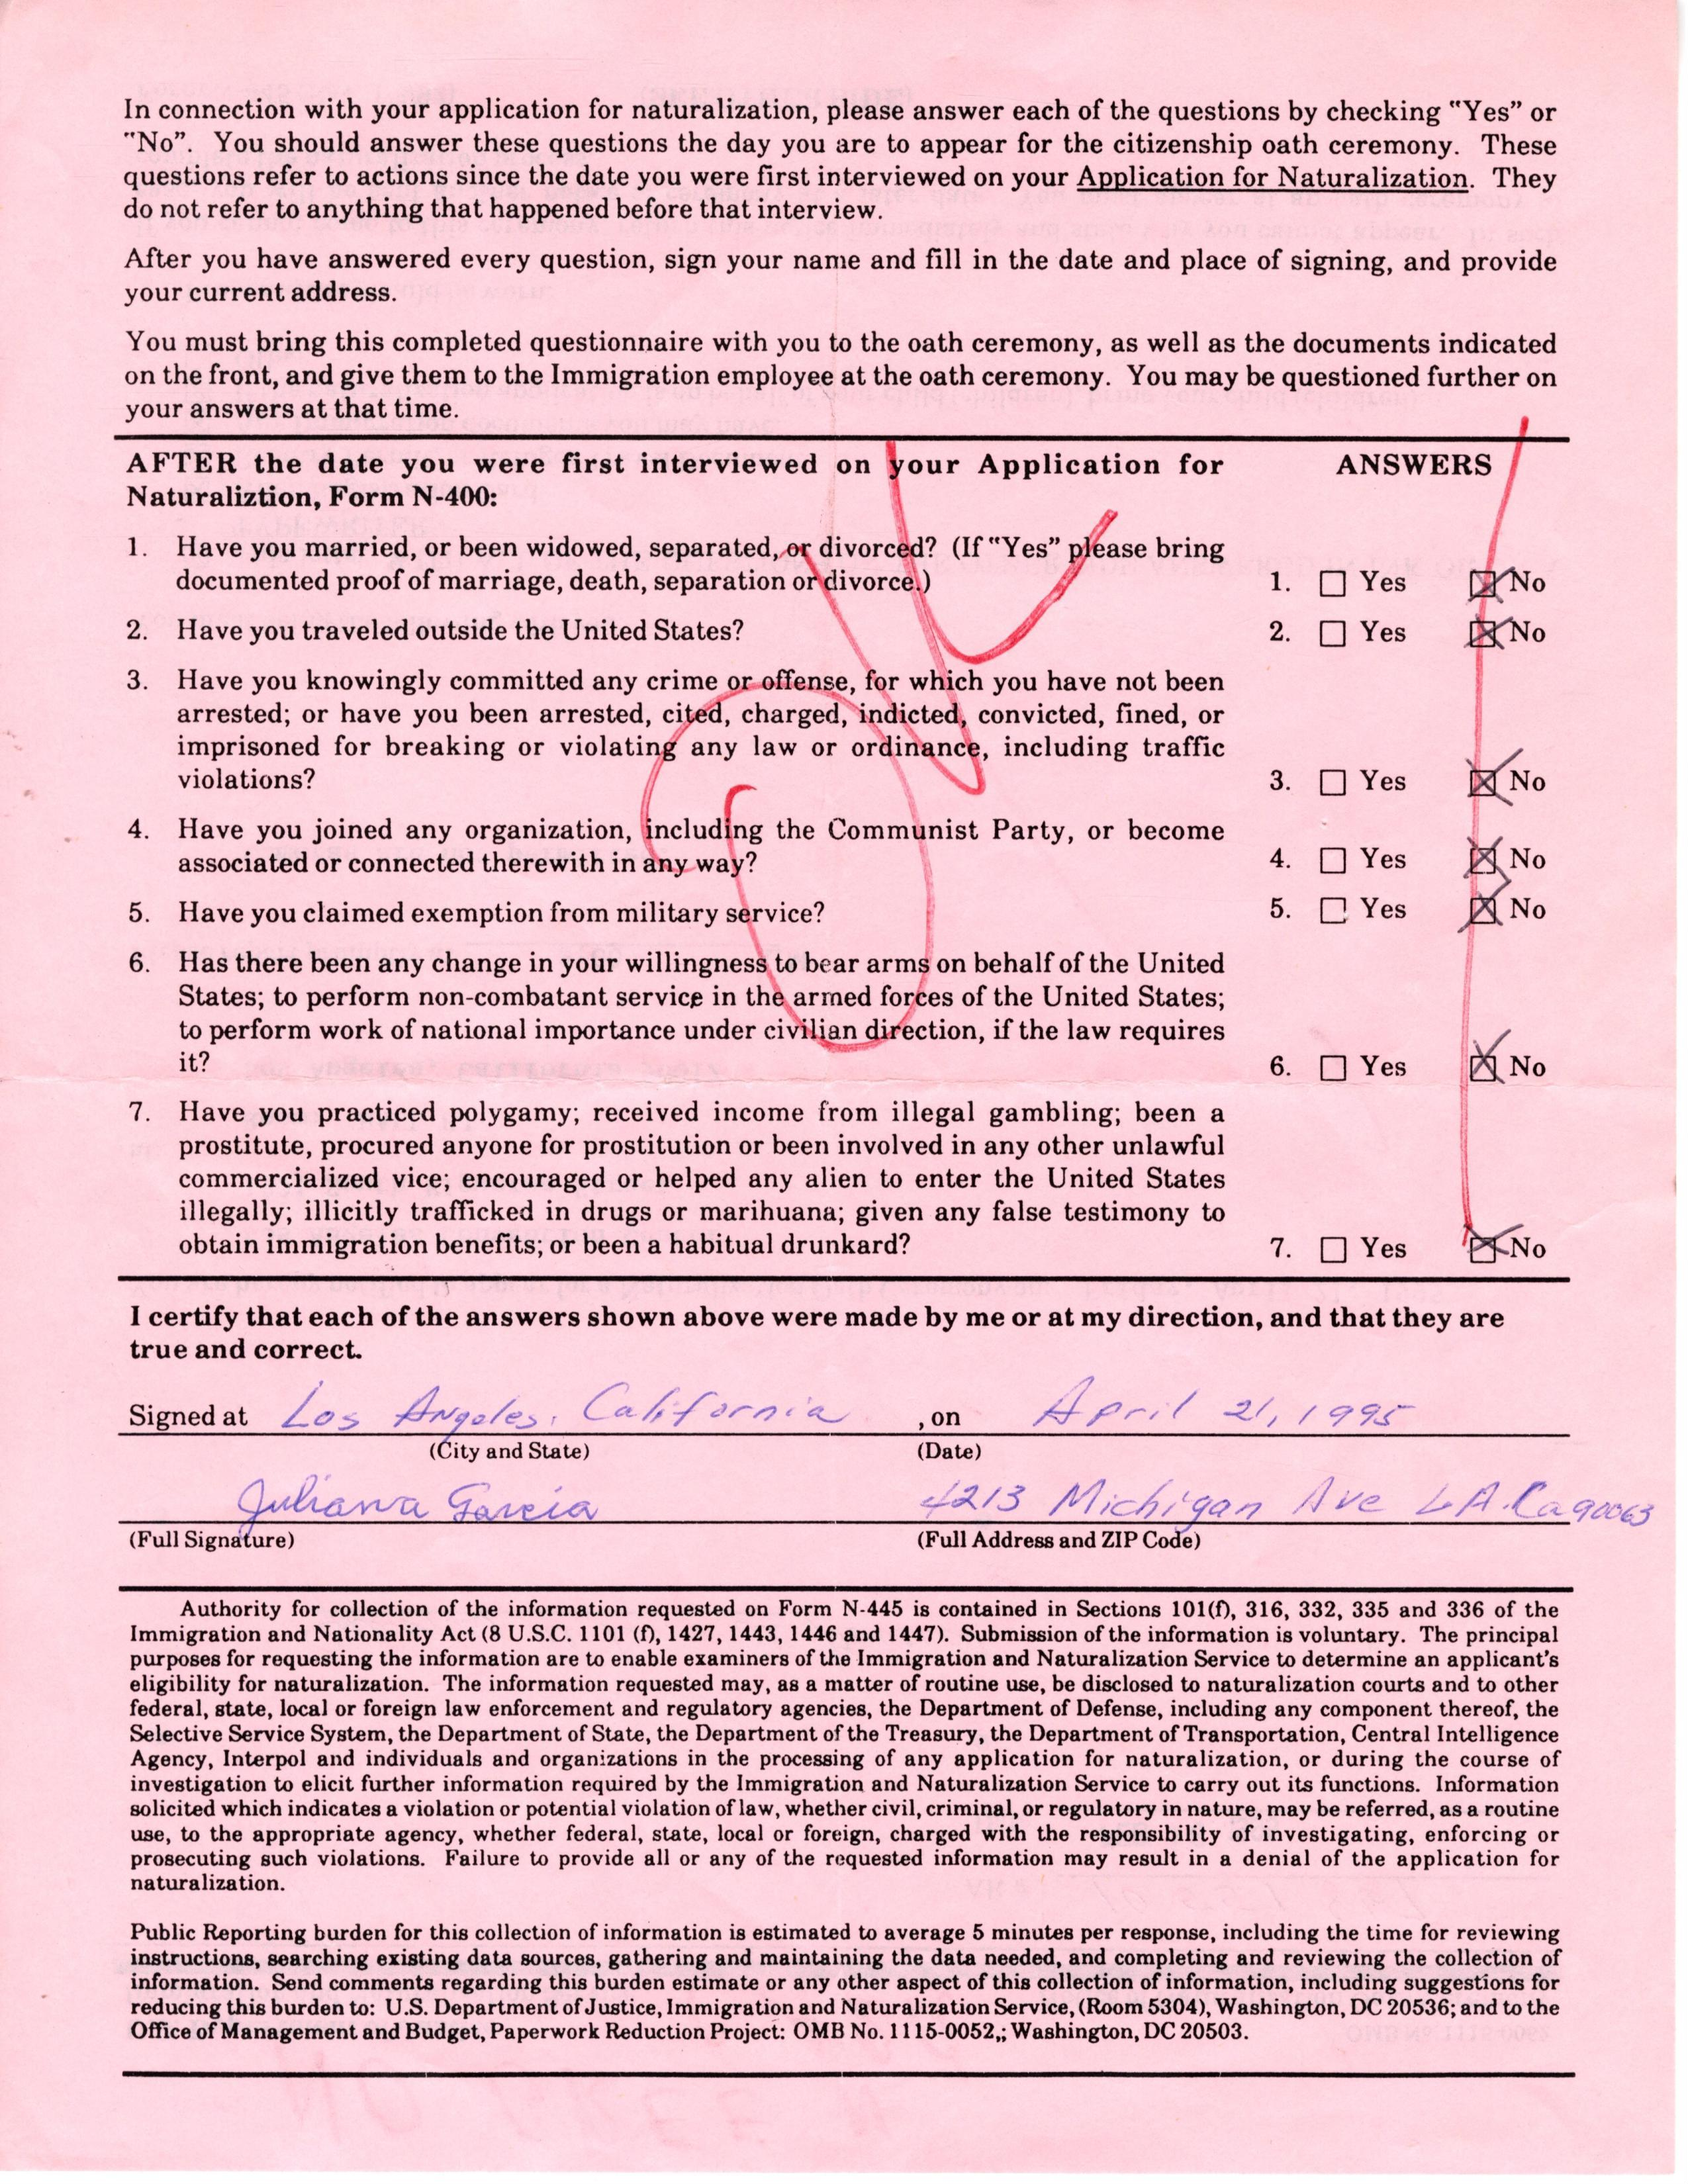 In connection with your application for naturalization, please answer each of the questions by checking "Yes" or
"No". You should answer these questions the day you are to appear for the citizenship oath ceremony. These
questions refer to actions since the date you were first interviewed on your Application for Naturalization. They
do not refer to anything that happened before that interview.
After you have answered every question, sign your name and fill in the date and place of signing, and provide
your current address.
You must bring this completed questionnaire with you to the oath ceremony, as well as the documents indicated
on the front, and give them to the Immigration employee at the oath ceremony. You may be questioned further on
your answers at that time.
AFTER the date you were first interviewed on your Application for ANSWERS
Naturaliztion, Form N-400:
1. Have you married, or been widowed, separated, or divorced? (If "Yes" please bring
documented proof of marriage, death, separation or divorce.) 1. ☐ Yes ☒ No
2. Have you traveled outside the United States? 2. ☐ Yes ☒ No
3. Have you knowingly committed any crime or offense, for which you have not been
arrested; or have you been arrested, cited, charged, indicted, convicted, fined, or
imprisoned for breaking or violating any law or ordinance, including traffic
violations? 3. ☐ Yes ☒ No
4. Have you joined any organization, including the Communist Party, or become
associated or connected therewith in any way? 4. ☐ Yes ☒ No
5. Have you claimed exemption from military service? 5. ☐ Yes ☒ No
6. Has there been any change in your willingness to bear arms on behalf of the United
States; to perform non-combatant service in the armed forces of the United States;
to perform work of national importance under civilian direction, if the law requires
it? 6. ☐ Yes ☒ No
7. Have you practiced polygamy; received income from illegal gambling; been a
prostitute, procured anyone for prostitution or been involved in any other unlawful
commercialized vice; encouraged or helped any alien to enter the United States
illegally; illicitly trafficked in drugs or marihuana; given any false testimony to
obtain immigration benefits; or been a habitual drunkard? 7. ☐ Yes ☒ No
OK
I certify that each of the answers shown above were made by me or at my direction, and that they are
true and correct.
Signed at Los Angeles, California , on April 21, 1995
(City and State) (Date)
Juliana Garcia 4213 Michigan Ave L.A. Ca 90063
(Full Signature) (Full Address and ZIP Code)
Authority for collection of the information requested on Form N-445 is contained in Sections 101(f), 316, 332, 335 and 336 of the
Immigration and Nationality Act (8 U.S.C. 1101 (f), 1427, 1443, 1446 and 1447). Submission of the information is voluntary. The principal
purposes for requesting the information are to enable examiners of the Immigration and Naturalization Service to determine an applicant's
eligibility for naturalization. The information requested may, as a matter of routine use, be disclosed to naturalization courts and to other
federal, state, local or foreign law enforcement and regulatory agencies, the Department of Defense, including any component thereof, the
Selective Service System, the Department of State, the Department of the Treasury, the Department of Transportation, Central Intelligence
Agency, Interpol and individuals and organizations in the processing of any application for naturalization, or during the course of
investigation to elicit further information required by the Immigration and Naturalization Service to carry out its functions. Information
solicited which indicates a violation or potential violation of law, whether civil, criminal, or regulatory in nature, may be referred, as a routine
use, to the appropriate agency, whether federal, state, local or foreign, charged with the responsibility of investigating, enforcing or
prosecuting such violations. Failure to provide all or any of the requested information may result in a denial of the application for
naturalization.
Public Reporting burden for this collection of information is estimated to average 5 minutes per response, including the time for reviewing
instructions, searching existing data sources, gathering and maintaining the data needed, and completing and reviewing the collection of
information. Send comments regarding this burden estimate or any other aspect of this collection of information, including suggestions for
reducing this burden to: U.S. Department of Justice, Immigration and Naturalization Service, (Room 5304), Washington, DC 20536; and to the
Office of Management and Budget, Paperwork Reduction Project: OMB No. 1115-0052,; Washington, DC 20503.